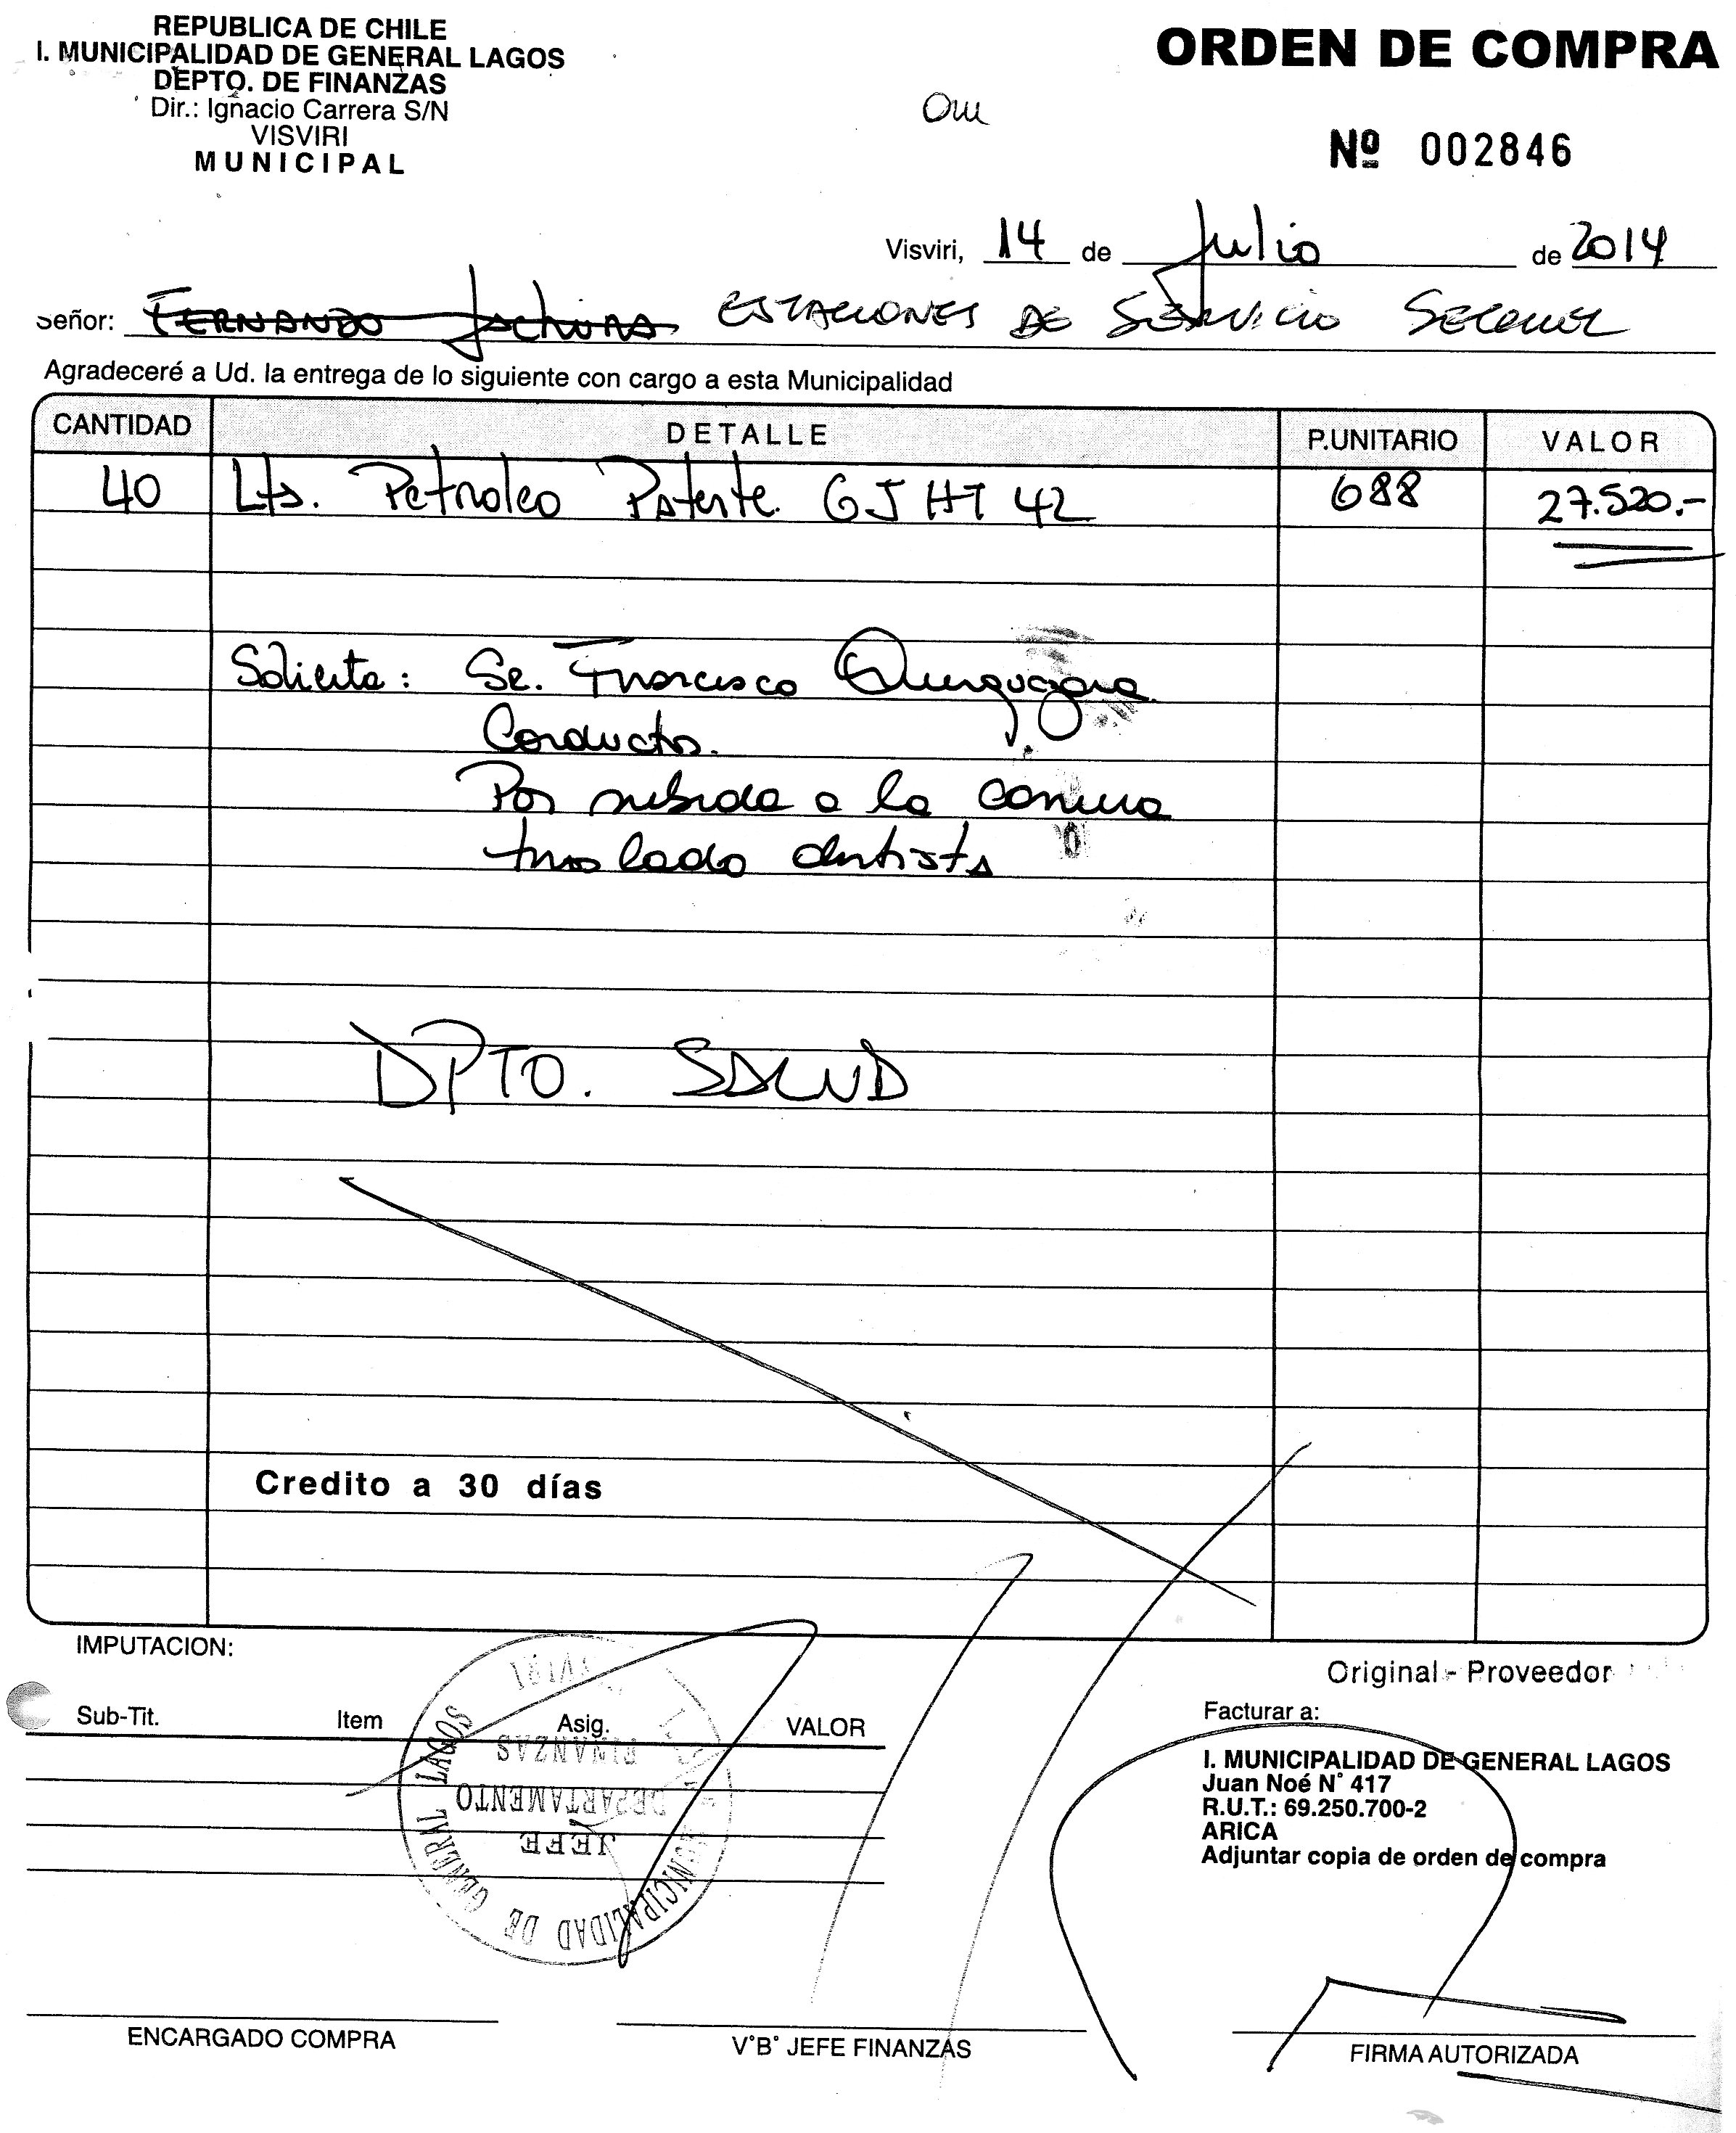 REPUBLICA DE CHILE
I. MUNICIPALIDAD DE GENERAL LAGOS
DEPTO. DE FINANZAS
Dir.: Ignacio Carrera S/N
VISVIRI
MUNICIPAL
ORDEN DE COMPRA
Nº 002846
Visviri, 14 de Julio de 2014
Señor: FERNANDO ESTACIONES DE SERVICIO
Agradeceré a Ud. la entrega de lo siguiente con cargo a esta Municipalidad
CANTIDAD DETALLE P.UNITARIO VALOR
40 Lts. Petroleo Patente GJHT 42 688 27.520.-
Solicita: Sr. Francisco
Conductor.
Por subida a la comuna
traslado dentista
DPTO. SALUD
Credito a 30 días
IMPUTACION:
Original - Proveedor
Sub-Tit. Item Asig. VALOR
Facturar a:
I. MUNICIPALIDAD DE GENERAL LAGOS
Juan Noé N° 417
R.U.T.: 69.250.700-2
ARICA
Adjuntar copia de orden de compra
MUNICIPALIDAD DE GENERAL LAGOS
JEFE
DEPARTAMENTO
FINANZAS
VISVIRI
ENCARGADO COMPRA
V°B° JEFE FINANZAS
FIRMA AUTORIZADA